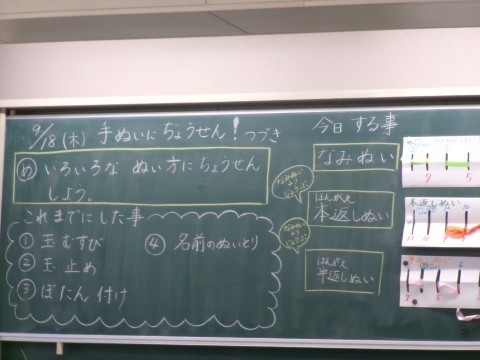 9/18(木) 手ぬいにちょうせん! つづき
め いろいろな ぬい方にちょうせん
しよう。
これまでにした事
① 玉むすび
② 玉止め
③ ぼたん付け
④ 名前のぬいとり
今日する事
なみぬい
なみぬい
より
じょうぶ
はんがえ
本返しぬい
なみぬい
より
じょうぶ
はんがえ
半返しぬい
7 5
本返しぬい